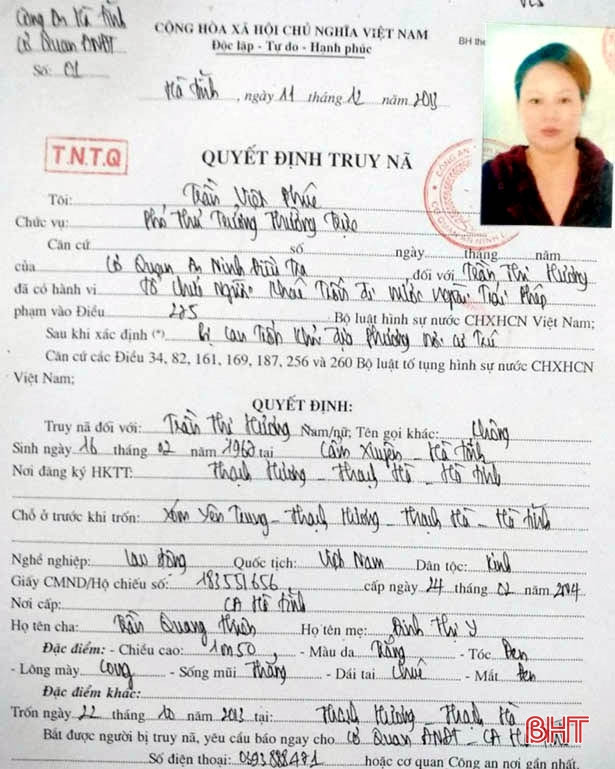 Công An Hà Tĩnh
Cơ Quan ANĐT
Số: 01
CỘNG HÒA XÃ HỘI CHỦ NGHĨA VIỆT NAM
Độc lập - Tự do - Hạnh phúc
BH the
Hà Tĩnh, ngày 11 tháng 12 năm 2013
T.N.T.Q
QUYẾT ĐỊNH TRUY NÃ
Tôi: Trần Việt Phúc
Chức vụ: Phó Thủ Trưởng Thường Trực
Căn cứ số ngày tháng năm
của Cơ Quan An Ninh Điều Tra, đối với Trần Thị Hương
đã có hành vi Tổ Chức Người Khác Trốn đi nước ngoài Trái Phép
phạm vào Điều 275 Bộ luật hình sự nước CHXHCN Việt Nam;
Sau khi xác định (*) Bị can Trốn Khỏi địa phương nơi cư Trú
Căn cứ các Điều 34, 82, 161, 169, 187, 256 và 260 Bộ luật tố tụng hình sự nước CHXHCN
Việt Nam;
QUYẾT ĐỊNH:
Truy nã đối với: Trần Thị Hương Nam/nữ; Tên gọi khác: Không
Sinh ngày 16 tháng 02 năm 1967 tại Cẩm Xuyên - Hà Tĩnh
Nơi đăng ký HKTT: Thạch Hương - Thạch Hà - Hà Tĩnh
Chỗ ở trước khi trốn: Xóm Yên Trung - Thạch Hương - Thạch Hà - Hà Tĩnh
Nghề nghiệp: Lao động Quốc tịch: Việt Nam Dân tộc: Kinh
Giấy CMND/Hộ chiếu số: 183551656 cấp ngày 24 tháng 02 năm 2004
Nơi cấp: CA Hà Tĩnh
Họ tên cha: Trần Quang Họ tên mẹ: Đinh Thị Y
Đặc điểm: - Chiều cao: 1m50 - Màu da Trắng - Tóc Đen
- Lông mày Cong - Sống mũi Thẳng - Dái tai Chúc - Mắt Đen
Đặc điểm khác:
Trốn ngày 22 tháng 10 năm 2013 tại: Thạch Hương - Thạch Hà
Bắt được người bị truy nã, yêu cầu báo ngay cho Cơ Quan ANĐT - CA Hà Tĩnh
BHT
Số điện thoại: 0393888481 hoặc cơ quan Công An nơi gần nhất.